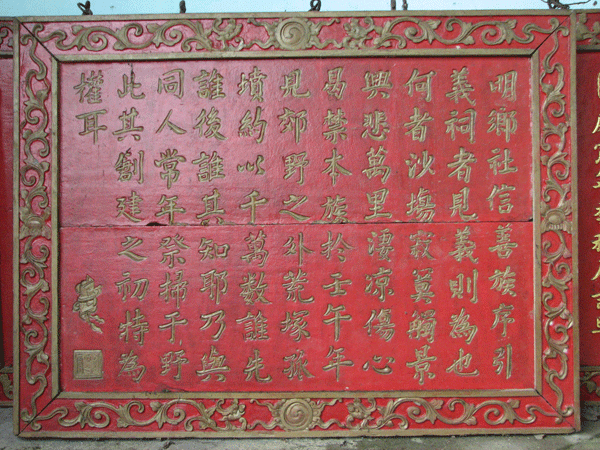 明鄉社信善族序引
義祠者見義則為也
何者沙塲寂莫觸景
興悲萬里淒凉傷心
曷禁本族扵壬午年
見郊野之外荒塚孤
墳約以千萬數誰先
誰後誰其知耶乃與
同人常年祭掃于野
此其創建之初特為
權耳